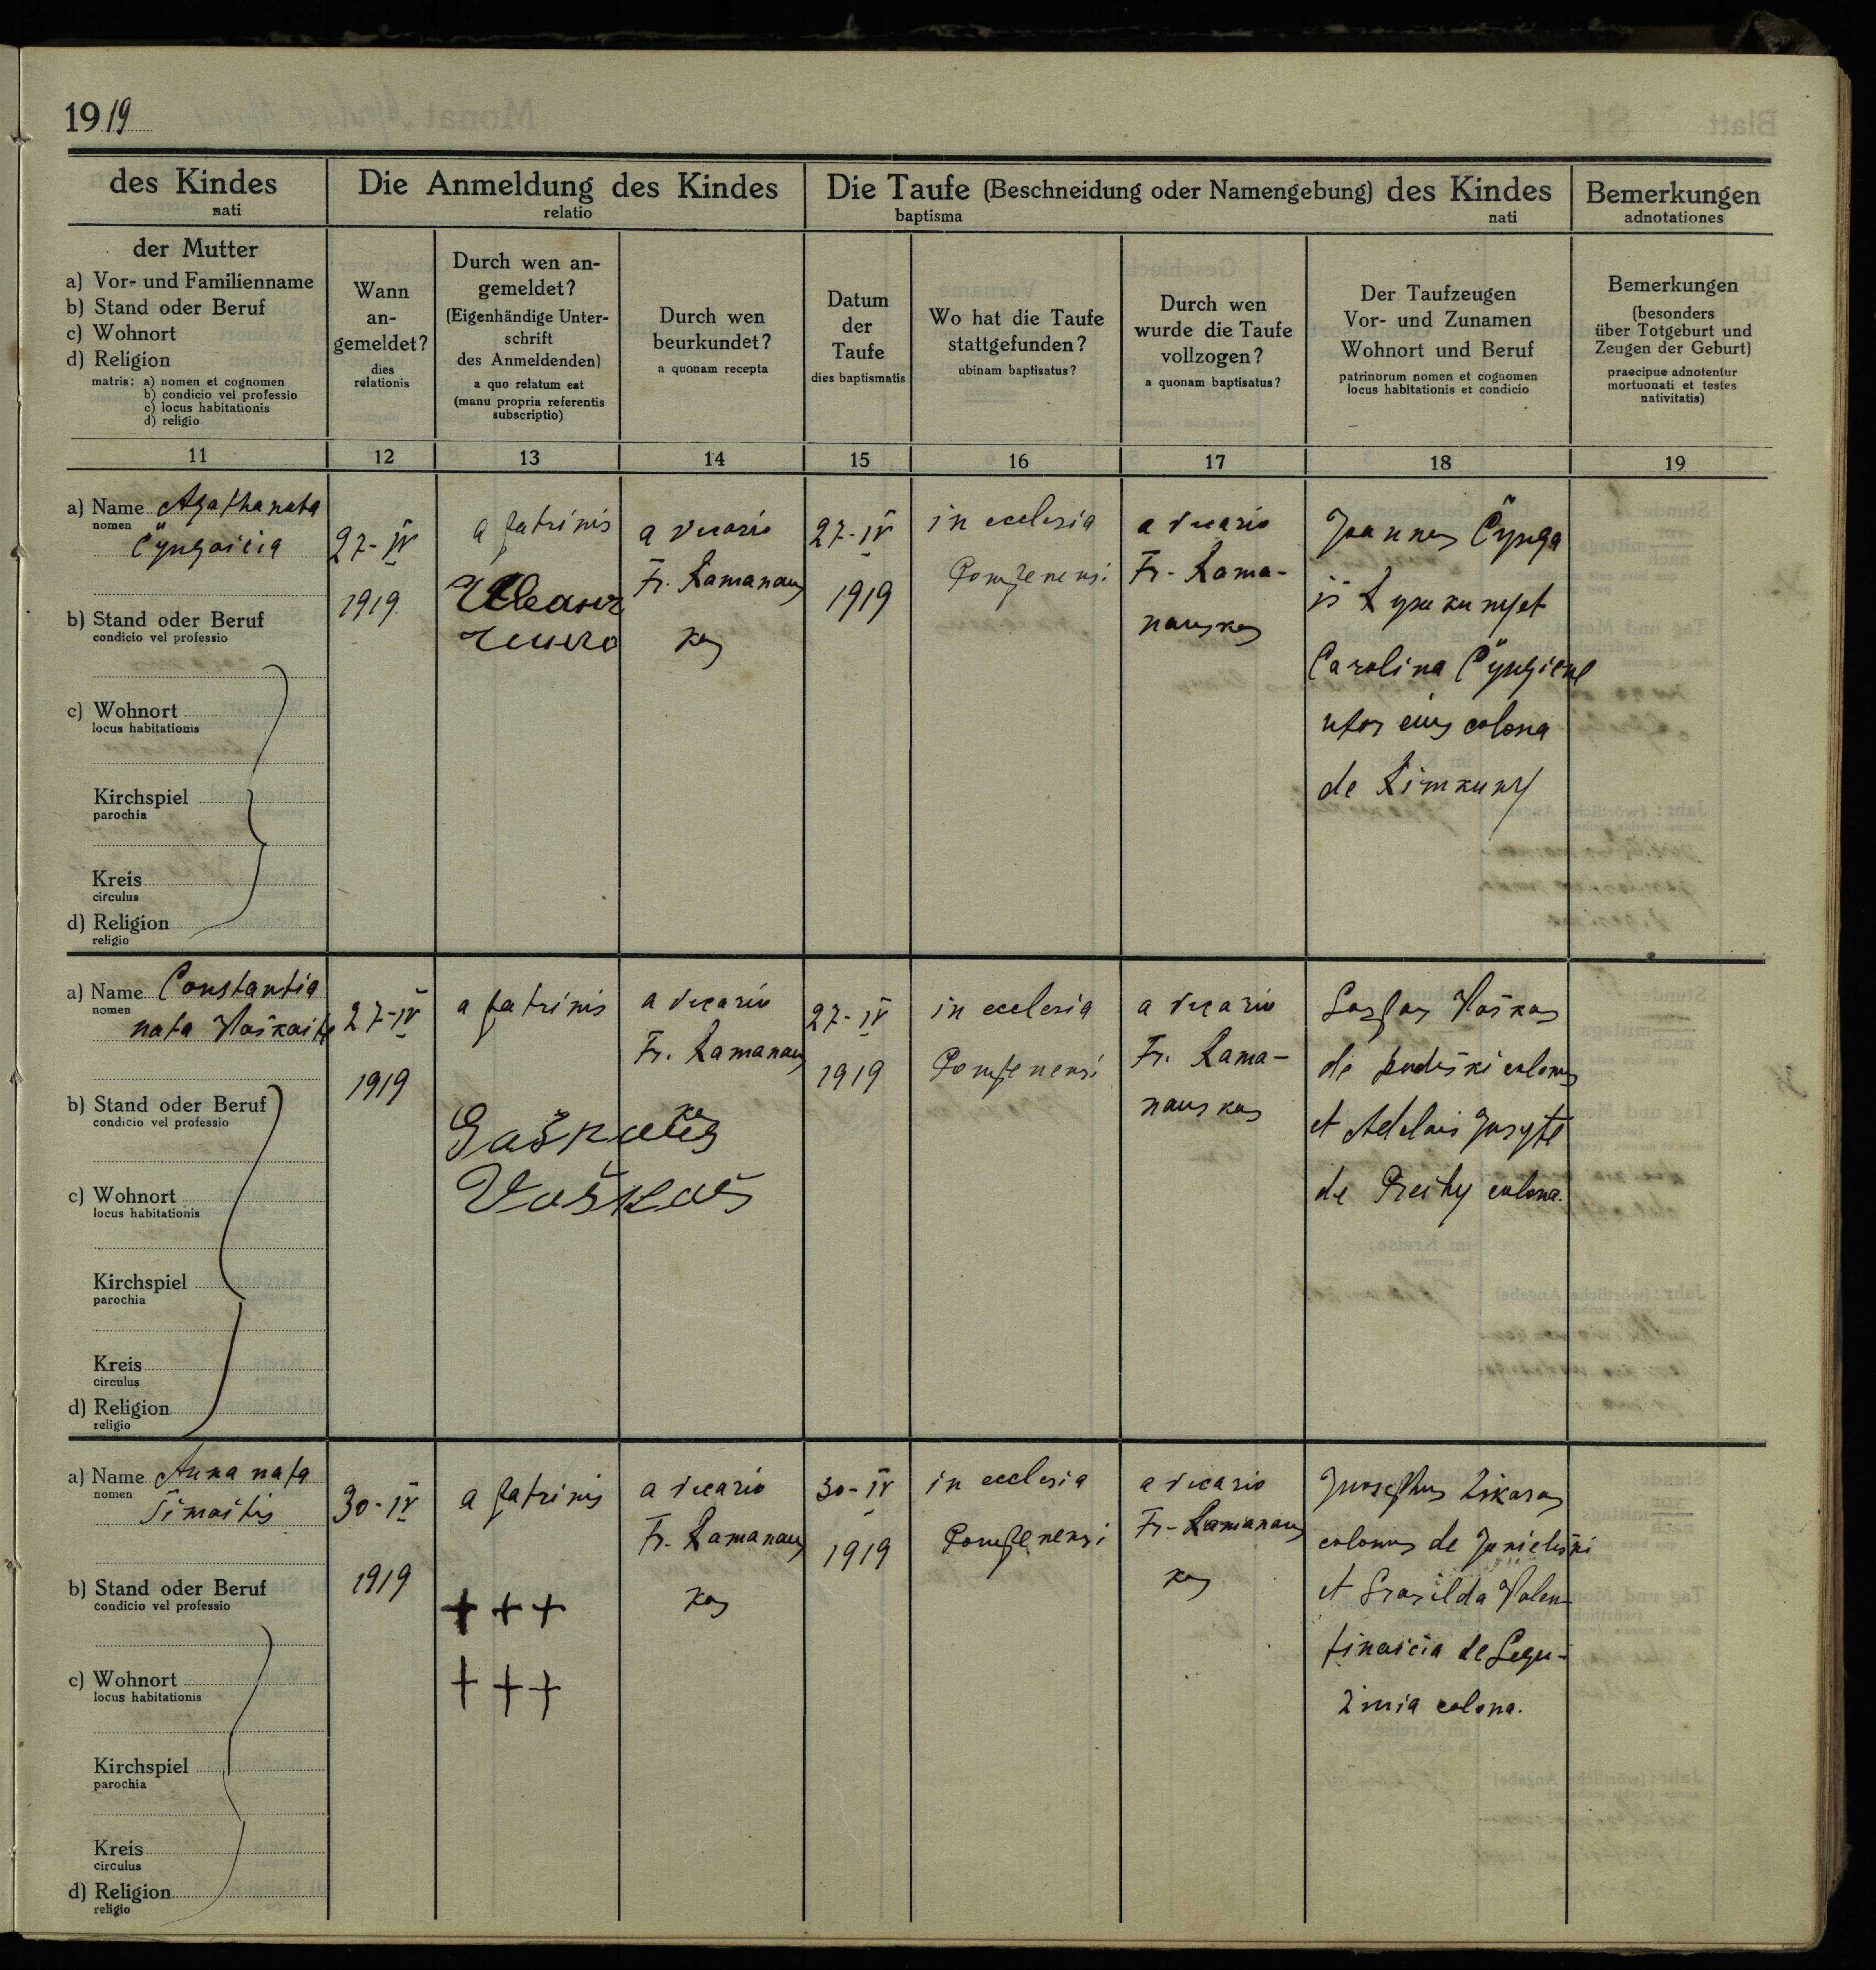 1919
des Kindes
nati
Die Anmeldung des Kindes
relatio
Die Taufe (Beschneidung oder Namengebung) des Kindes
baptisma nati
Bemerkungen
adnotationes
der Mutter
a) Vor- und Familienname
b) Stand oder Beruf
c) Wohnort
d) Religion
matris: a) nomen et cognomen
b) condicio vel professio
c) locus habitationis
d) religio
Wann
an-
gemeldet?
dies
relationis
Durch wen an-
gemeldet?
(Eigenhändige Unter-
schrift
des Anmeldenden)
a quo relatum est
(manu propria referentis
subscriptio)
Durch wen
beurkundet?
a quonam recepta
Datum
der
Taufe
dies baptismatis
Wo hat die Taufe
stattgefunden?
ubinam baptisatus?
Durch wen
wurde die Taufe
vollzogen?
a quonam baptisatus?
Der Taufzeugen
Vor- und Zunamen
Wohnort und Beruf
patrinorum nomen et cognomen
locus habitationis et condicio
Bemerkungen
(besonders
über Totgeburt und
Zeugen der Geburt)
praecipue adnotentur
mortuonati et testes
nativitatis)
11 12 13 14 15 16 17 18 19
a) Name Agatha nata
nomen
b) Stand oder Beruf
condicio vel professio
c) Wohnort
locus habitationis
Kirchspiel
parochia
Kreis
circulus
d) Religion
religio
27-IV
1919
a patrinis
a vicario
Fr. Ramanaus
kas
27-IV
1919
in ecclesia
Pompenensi
a vicario
Fr. Rama-
nauskas
Joannes
et
Carolina
uxor eius colona
de Rimkuny
a) Name Constantia
nomen
nata Vaškaite
b) Stand oder Beruf
condicio vel professio
c) Wohnort
locus habitationis
Kirchspiel
parochia
Kreis
circulus
d) Religion
religio
27-IV
1919
a patrinis
Vaškas
a vicario
Fr. Ramanaus
kas
27-IV
1919
in ecclesia
Pompenensi
a vicario
Fr. Rama-
nauskas
Vaškas
de colonus
et
de colona.
a) Name Anna nata
nomen
b) Stand oder Beruf
condicio vel professio
c) Wohnort
locus habitationis
Kirchspiel
parochia
Kreis
circulus
d) Religion
religio
30-IV
1919
a patrinis
+ + +
+ + +
a vicario
Fr. Ramanaus
kas
30-IV
1919
in ecclesia
Pompenensi
a vicario
Fr. Ramanaus
kas
Josephus
colonus de
et
de
colona.